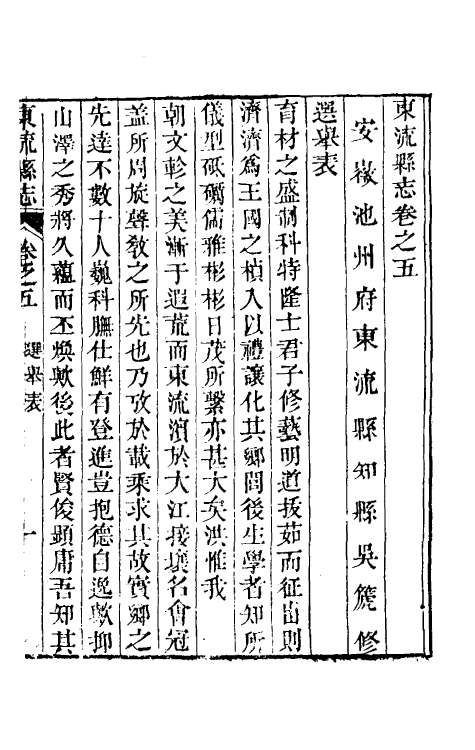 東流縣志卷之五
安徽池州府東流縣知縣吳篪修
選舉表
育材之盛制科特隆士君子修藝明道拔茹而征出則
濟濟爲王國之楨入以禮讓化其鄉閭後生學者知所
儀型砥礪儒雅彬彬日茂所繫亦甚大矣洪惟我
朝文軫之美漸于遐荒而東流濱於大江接壤名會冠
蓋所周旋聲敎之所先也乃攷於載乘求其故實鄉之
先達不數十人巍科膴仕鮮有登進豈抱德自逸歟抑
山澤之秀將久蘊而丕煥歟後此者賢俊顯庸吾知其
東流縣志 卷之五 選舉表 一